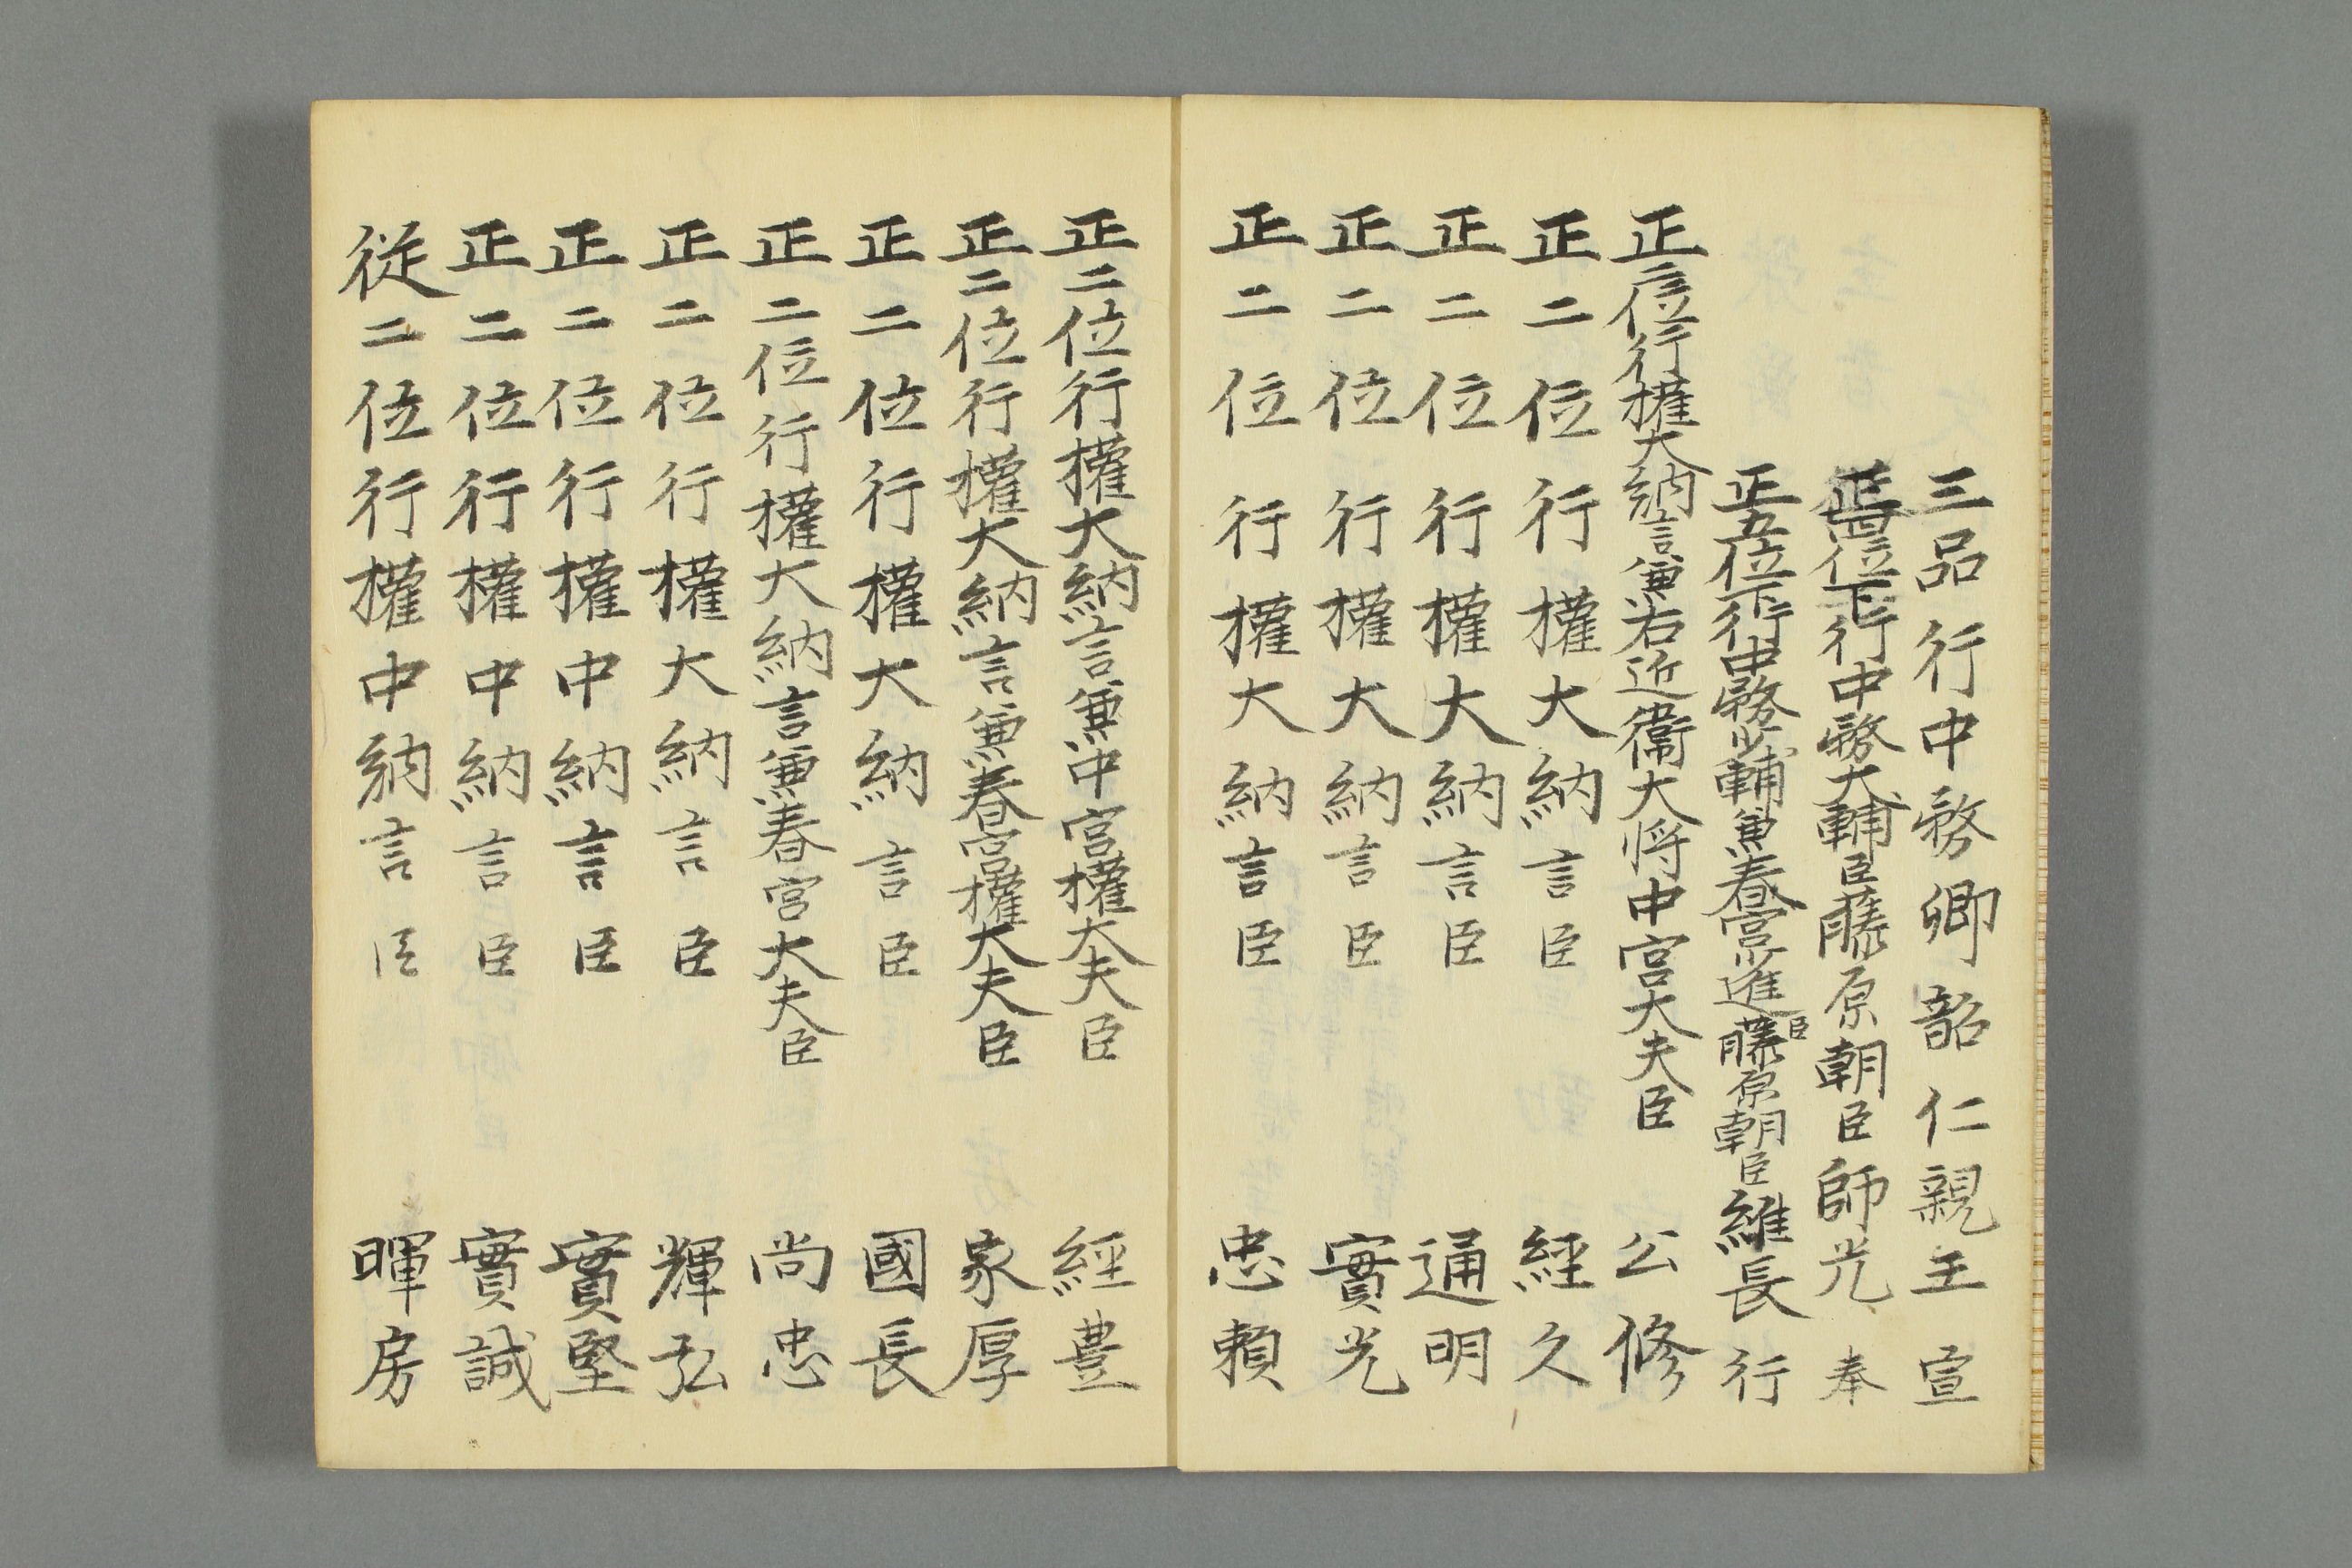 三品行中務卿韶仁親王宣
正四位下行中務大輔臣藤原朝臣師光奉
正五位下行中務少輔兼春宮少進臣藤原朝臣維長行
正二位行權大納言兼右近衛大将中宮大夫臣 公修
正二位行權大納言臣 經久
正二位行權大納言臣 通明
正二位行權大納言臣 實光
正二位行權大納言臣 忠頼
正二位行權大納言兼中宮權大夫臣 經豊
正二位行權大納言兼春宮權大夫臣 家厚
正二位行權大納言臣 國長
正二位行權大納言兼春宮大夫臣 尚忠
正二位行權大納言臣 輝弘
正二位行權中納言臣 實堅
正二位行權中納言臣 實誠
従二位行權中納言臣 暉房